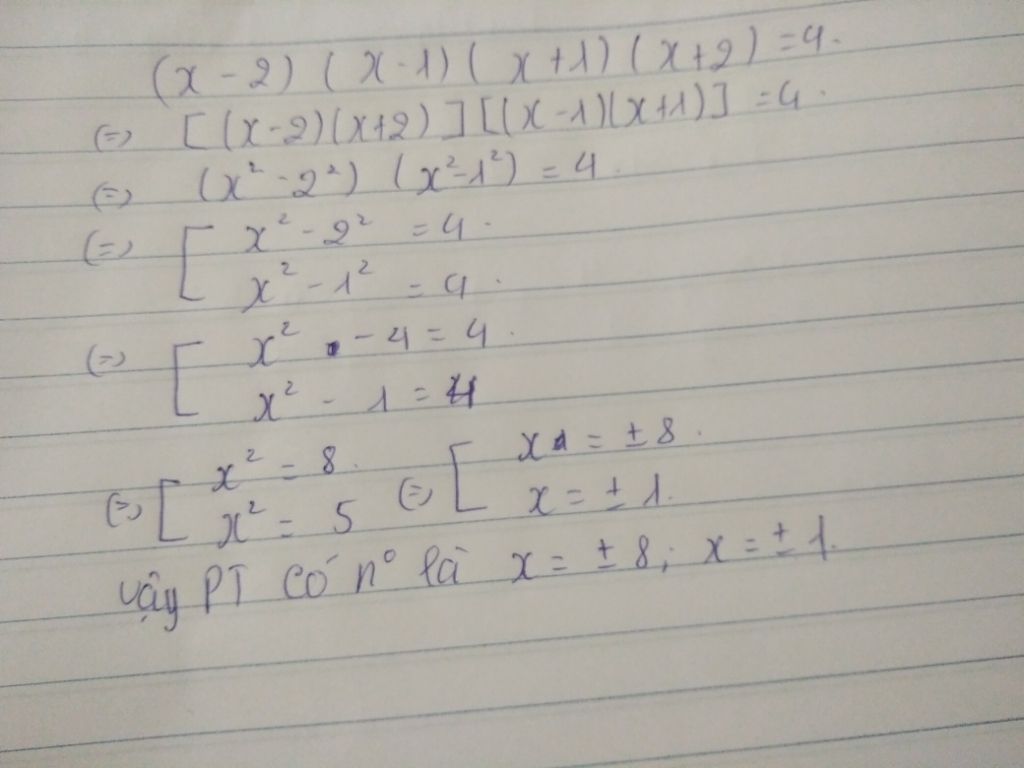 (x - 2) (x - 1) (x + 1) (x + 2) = 4.
(=) [(x - 2)(x + 2)] [(x - 1)(x + 1)] = 4.
(=) (x² - 2²) (x² - 1²) = 4.
(=) [ x² - 2² = 4.
x² - 1² = 4.
(=) [ x² - 4 = 4.
x² - 1 = 4
(=) [ x² = 8. (=) [ x = ± 8.
x² = 5 x = ± 1.
Vậy PT có n° là x = ± 8; x = ± 1.